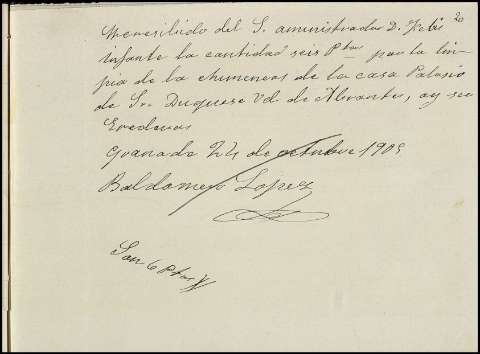 20
He resibido del S. aministrador D. Felis
infante la cantidad seis Ptas por la lim-
pia de la chimeneas de la casa Palasio
de Sra Duquese Vd. de Abrantes, oy sus
Erederos
Granada 24 de octubre 1905
Baldomero Lopez
Son 6 Ptas